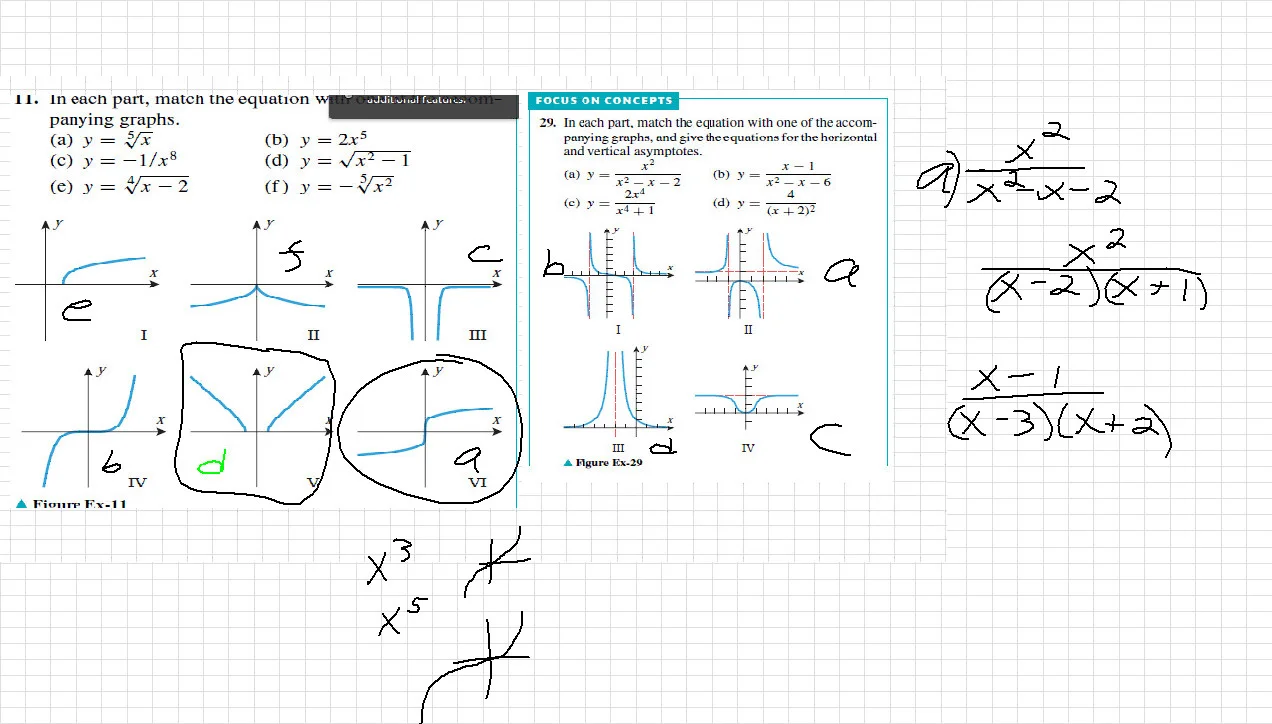 11. In each part, match the equation with
additional features.
panying graphs.
(a) y = ⁵√x
(b) y = 2x⁵
(c) y = −1/x⁸
(d) y = √(x² − 1)
(e) y = ⁴√(x − 2)
(f) y = −⁵√(x²)
y
x
e
I
y
f
x
II
y
c
x
III
y
x
b
IV
y
x
d
V
y
x
a
VI
▲ Figure Ex-11
FOCUS ON CONCEPTS
29. In each part, match the equation with one of the accom-
panying graphs, and give the equations for the horizontal
and vertical asymptotes.
(a) y = x²/(x² − x − 2)
(b) y = (x − 1)/(x² − x − 6)
(c) y = 2x⁴/(x⁴ + 1)
(d) y = 4/(x + 2)²
b
y
x
I
y
x
a
II
y
x
III
d
y
x
IV
c
▲ Figure Ex-29
a) x²/(x² − x − 2)
x²/((x − 2)(x + 1))
(x − 1)/((x − 3)(x + 2))
x³
x⁵